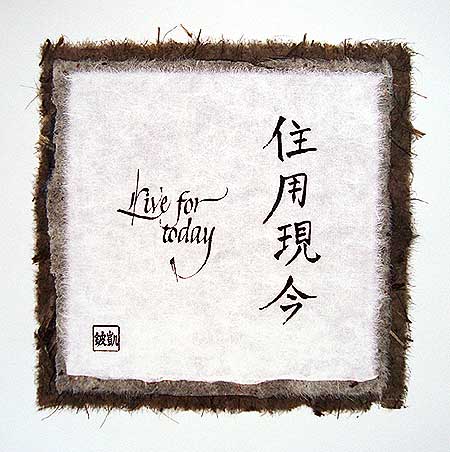 住用現今
Live for
today
凱